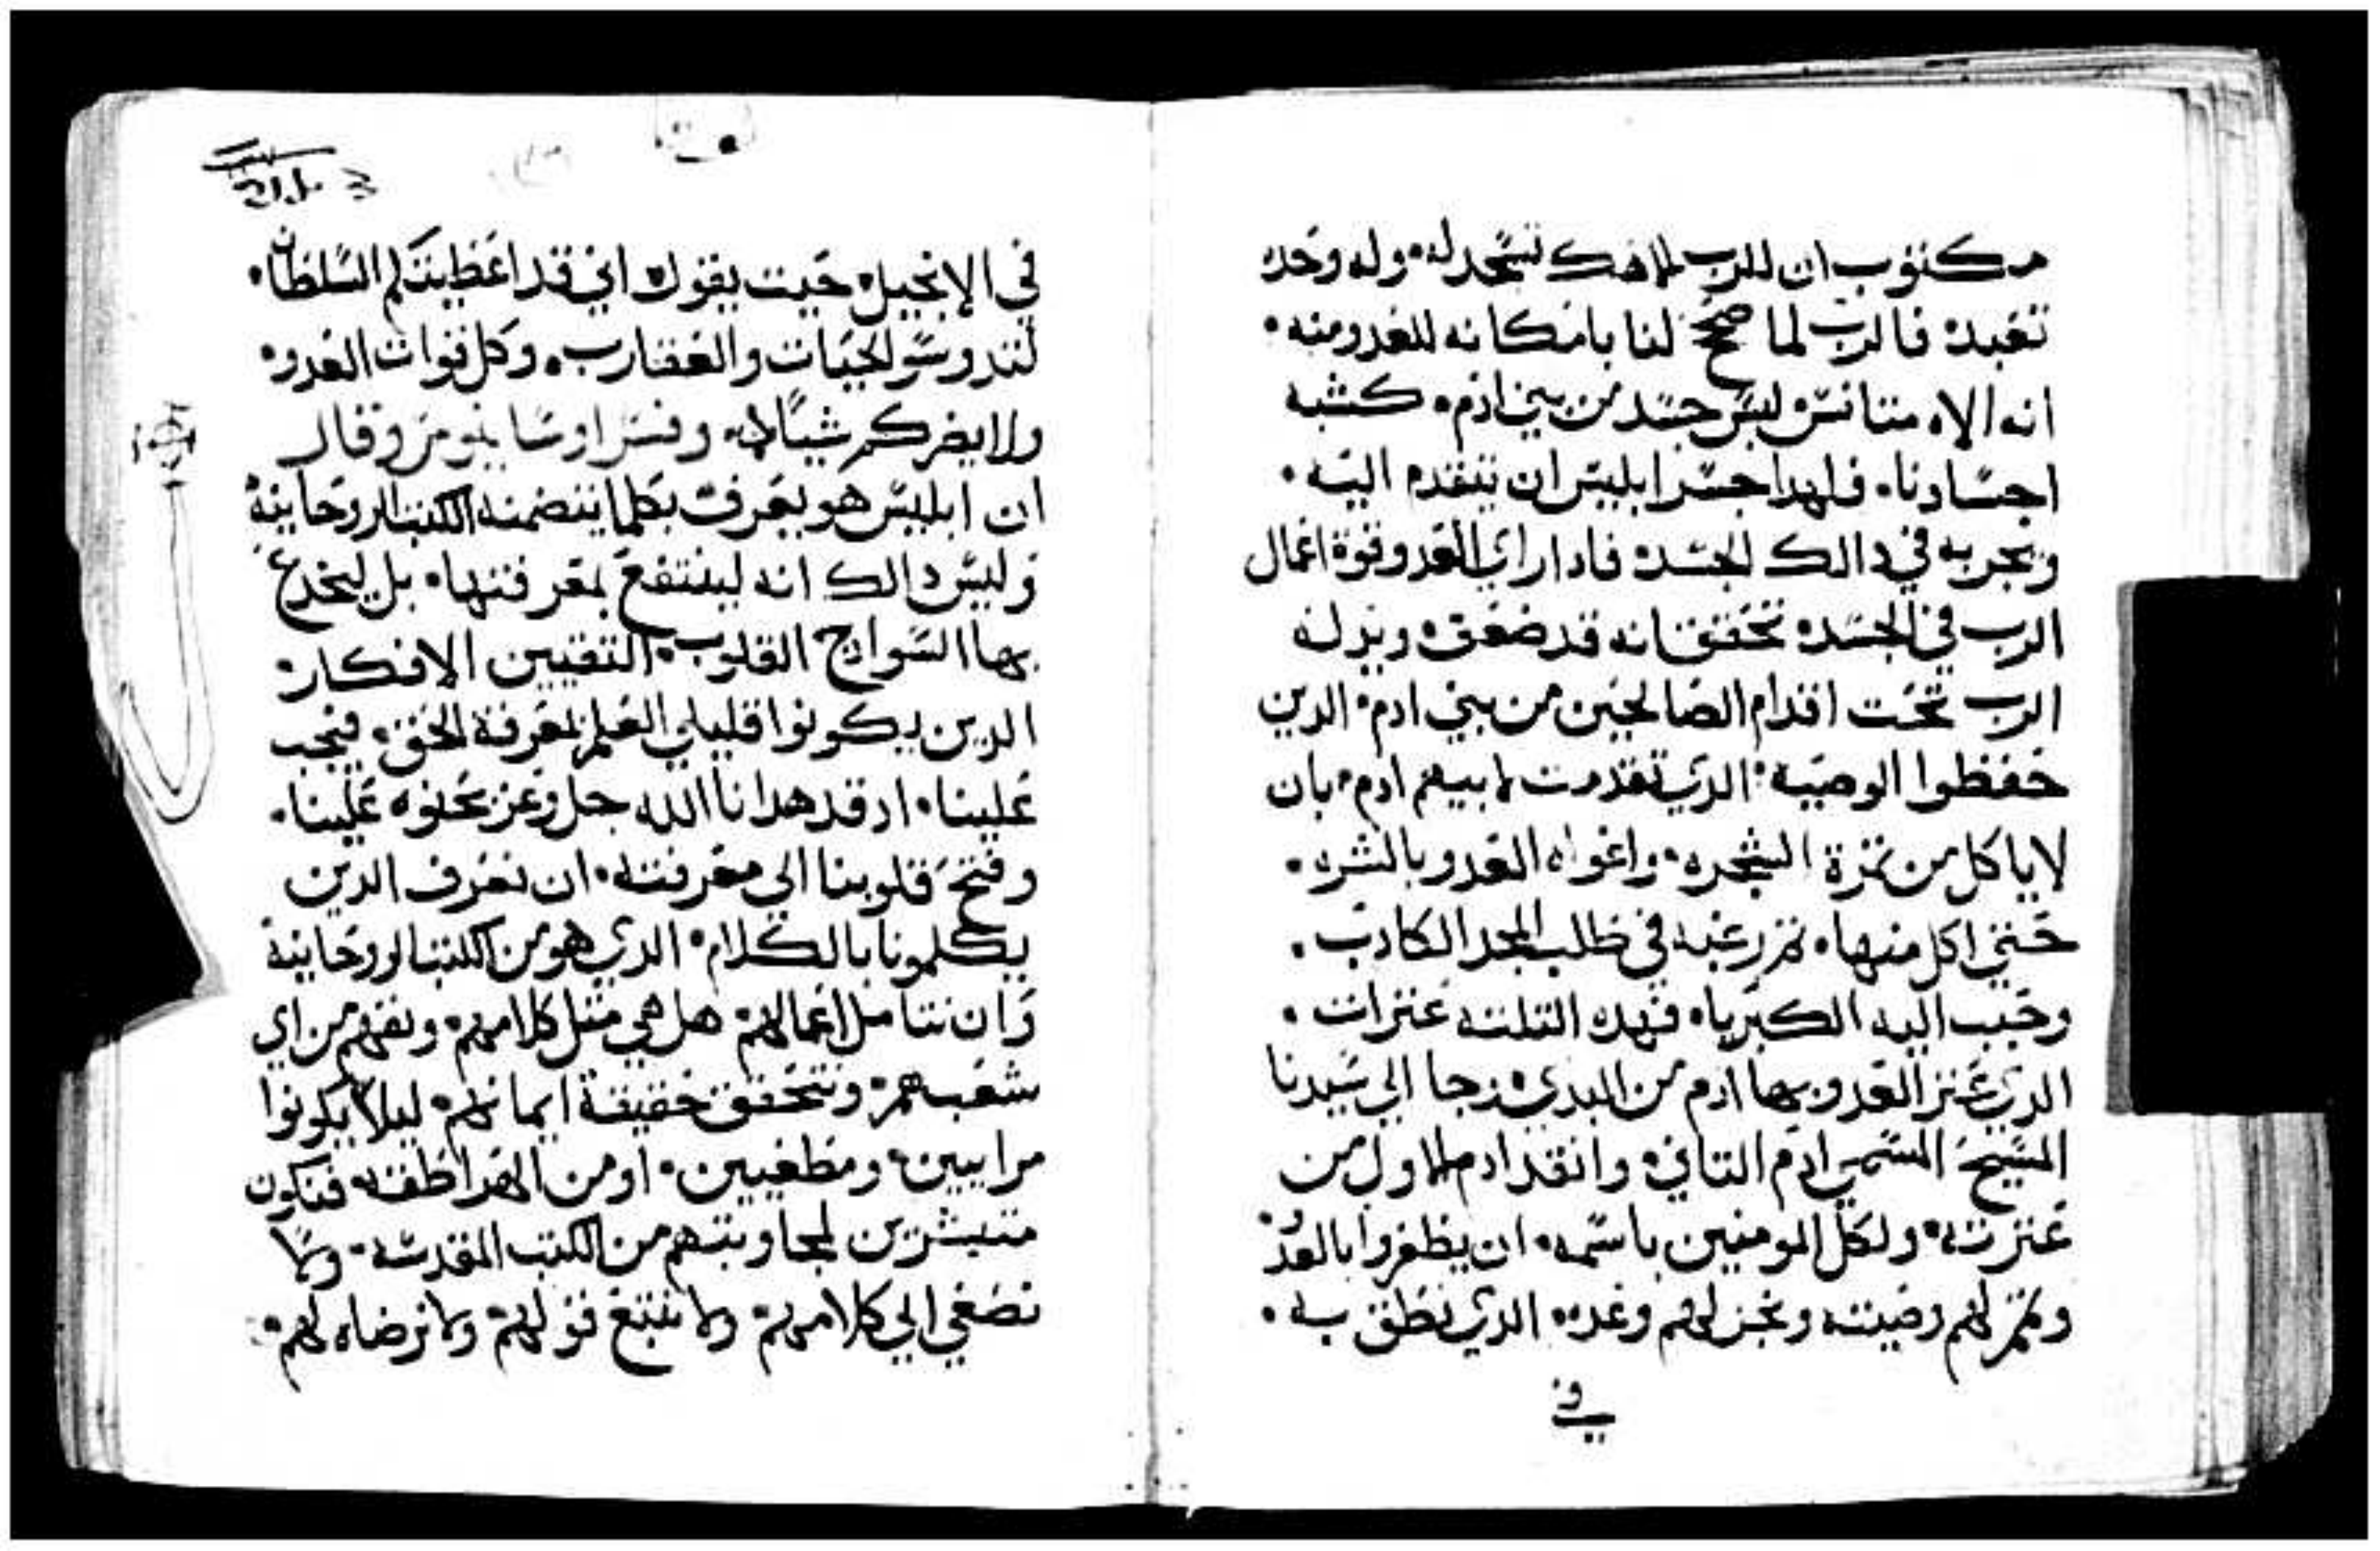 مكتوب ان للرب الاهك تسجد له۰ وله وحده
تعبد۰ فالرب لما صحح لنا بامكانه للعدو منه۰
انه الاه متانس لبس جسد من بني ادم۰ كشبه
اجسادنا۰ فلهدا جسر ابليس ان يتقدم اليه۰
ويجربه في دالك الجسد۰ فادا راي العدو قوة اعمال
الرب في الجسد۰ تحقق انه قد ضعف۰ وينزله
الرب تحت اقدام الصالحين من بني ادم۰ الدين
حفظوا الوصيه۰ الدي تقدمت لابيهم ادم۰ بان
لا ياكل من تمرة الشجره۰ واغواه العدو بالشره۰
حتي اكل منها۰ تم رغبه في طلب المجد الكادب۰
وحبب اليه الكبرياء فهده التلته عترات۰
الدي عتر العدو بها ادم من البدي۰ فجا الي سيدنا
المسيح المسمي ادم التاني۰ وانقد ادم الاول من
عترته۰ ولكل المومنين باسمه۰ ان يظفروا بالعدو۰
وتمم لهم وصيته ونجز لهم وعده۰ الدي نطق به۰
في
في الانجيل۰ حيت يقول۰ اني قد اعطيتكم السلطان۰
لتدوسوا الحيات والعقارب۰ وكل قوات العدو۰
ولا يضركم شيا۰ وفسر اوسانيوس وقال
ان ابليس هو يعرف بكلما يتضمنه الكتب الروحانية
وليس دالك انه لينتفع بمعرفتها۰ بل ليخدع
بها السواذج القلوب۰ التقيين الافكار۰
الدين يكونوا قليلي العلم لمعرفة الحق۰ فيجب
علينا۰ اد قد هدانا الله جل وعز بحنوه علينا۰
وفتح قلوبنا الي معرفته۰ ان نعرف الدين
يكلمونا بالكلام۰ الدي هو من الكتب الروحانية
وان نتامل اعمالهم۰ هل هي متل كلامهم۰ ونفهم من اي
شعب هم۰ ونتحقق حقيقة ايمانهم۰ ليلا يكونوا
مراييين۰ ومطغيين۰ او من الهراطقه۰ فنكون
متيشرين لمجاوبتهم من الكتب المقدسه۰ ولا
نصغي الي كلامهم۰ ولا نتبع قولهم۰ ولا نرضاه لهم۰